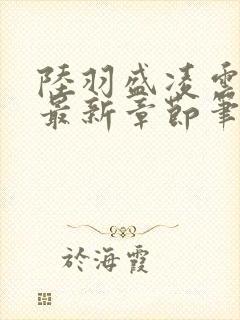 陸羽盛凌雲
最新章節筆
於海霞